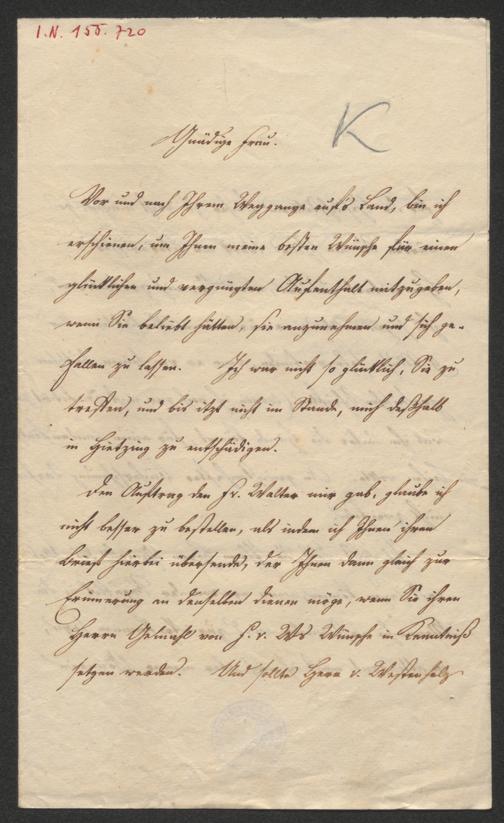 I.N. 155.720
K
Gnädige Frau.
Vor und nach Ihrem Weggange auf's Land, bin ich
erschienen, um Ihnen meine besten Wünsche für einen
glücklichen und vergnügten Aufenthalt mitzugeben,
wenn Sie beliebt hätten, sie anzunehmen und sich ge-
fallen zu lassen. Ich war nicht so glücklich, Sie zu
treffen, und bis itzt nicht im Stande, mich deßhalb
in Hietzing zu entschädigen.
Den Auftrag den Fr. Walter mir gab, glaube ich
nicht besser zu bestellen, als indem ich Ihnen ihren
Brief hierbei übersende, der Ihnen dann gleich zur
Erinnerung an denselben dienen möge, wenn Sie ihren
Herrn Gemahl von F. v. Ws Wünsche in Kenntniß
setzen werden. Und sollte Herr v. Westenholz